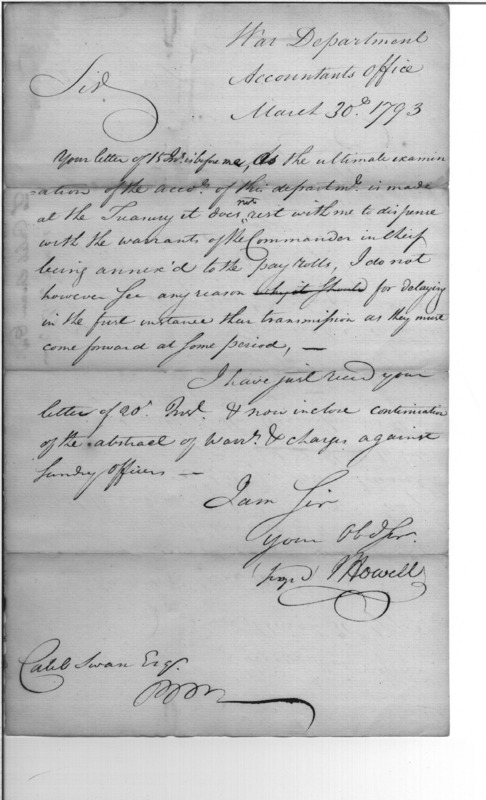 War Department
Accountants Office
Sir March 30th 1793
Your letter of 15 Inst. is before me, As the ultimate examin
ation of the accots. of this departmt. is made
at the Treasury it does not rest with me to dispense
with the warrants of the Commander in Chief
being annex'd to the pay rolls, I do not
however see any reason why it should for delaying
in the first instance their transmission as they must
come forward at some period, —
I have just recd your
letter of 20th. Inst. & now inclose continuation
of the abstract of Warrts. & charges against
sundry officers —
I am Sir
your Ob d Sr.
(signd) J Howell
Caleb Swan Esqr.
PMM